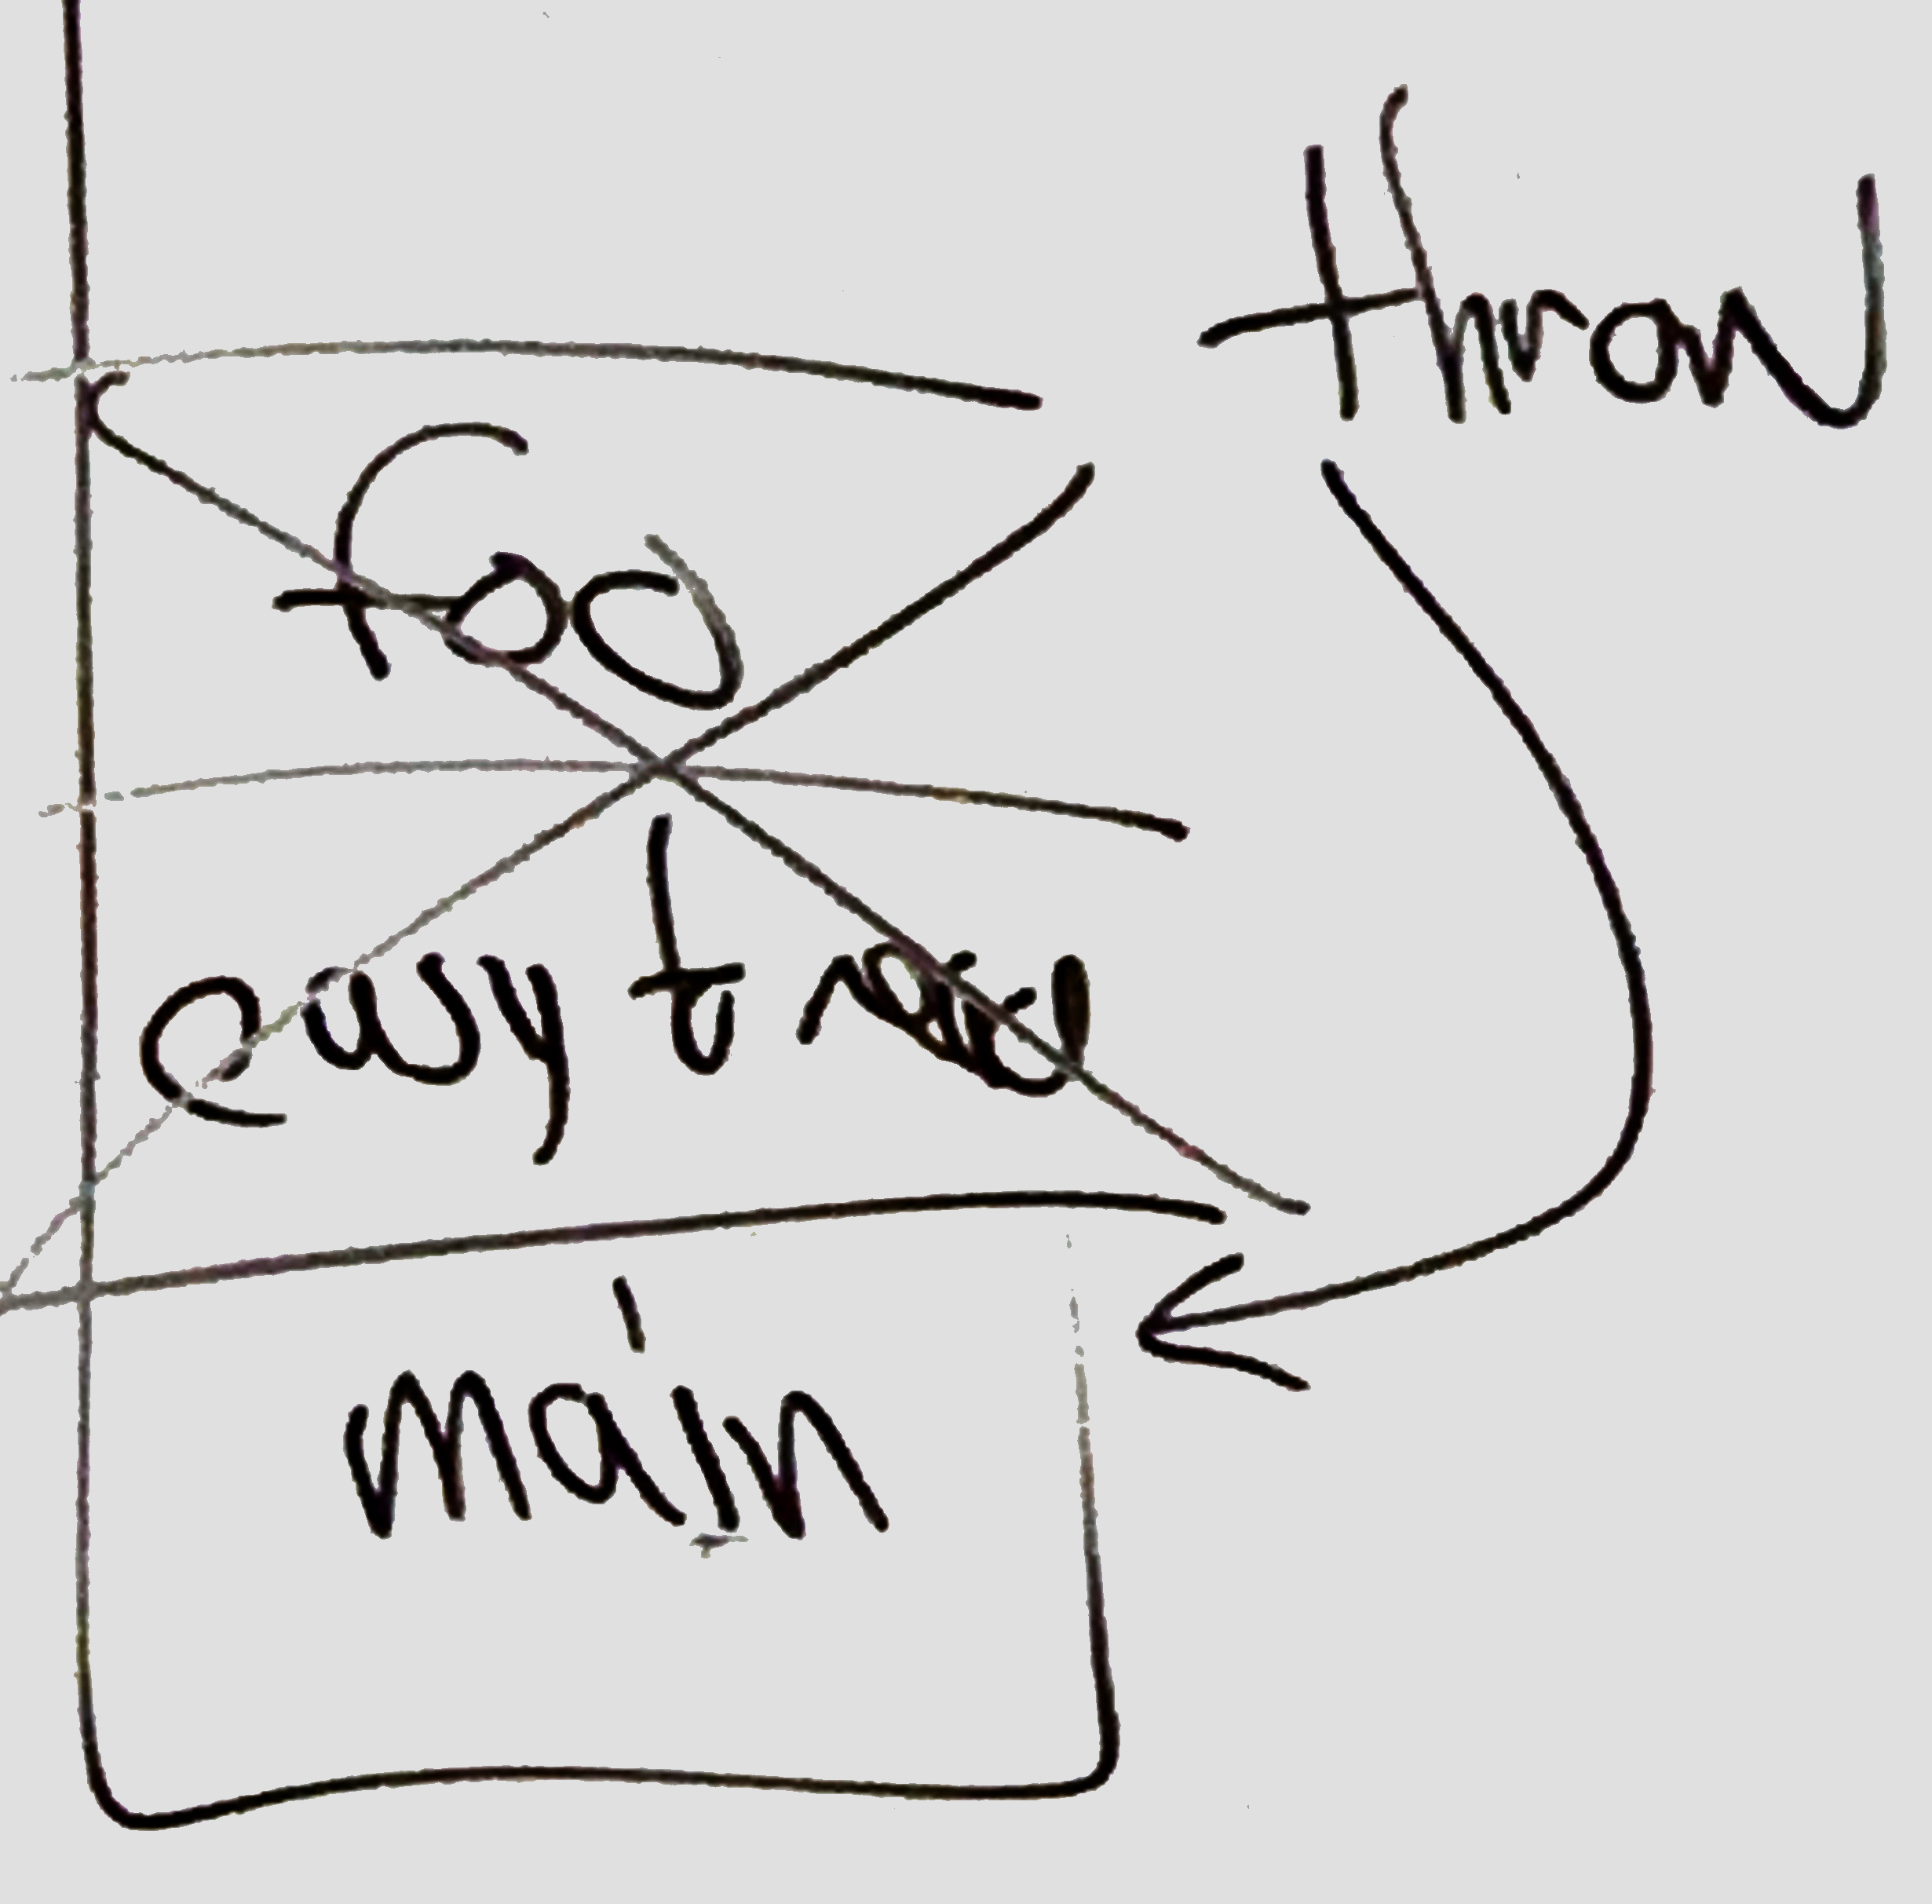 throw
foo
easy to
main